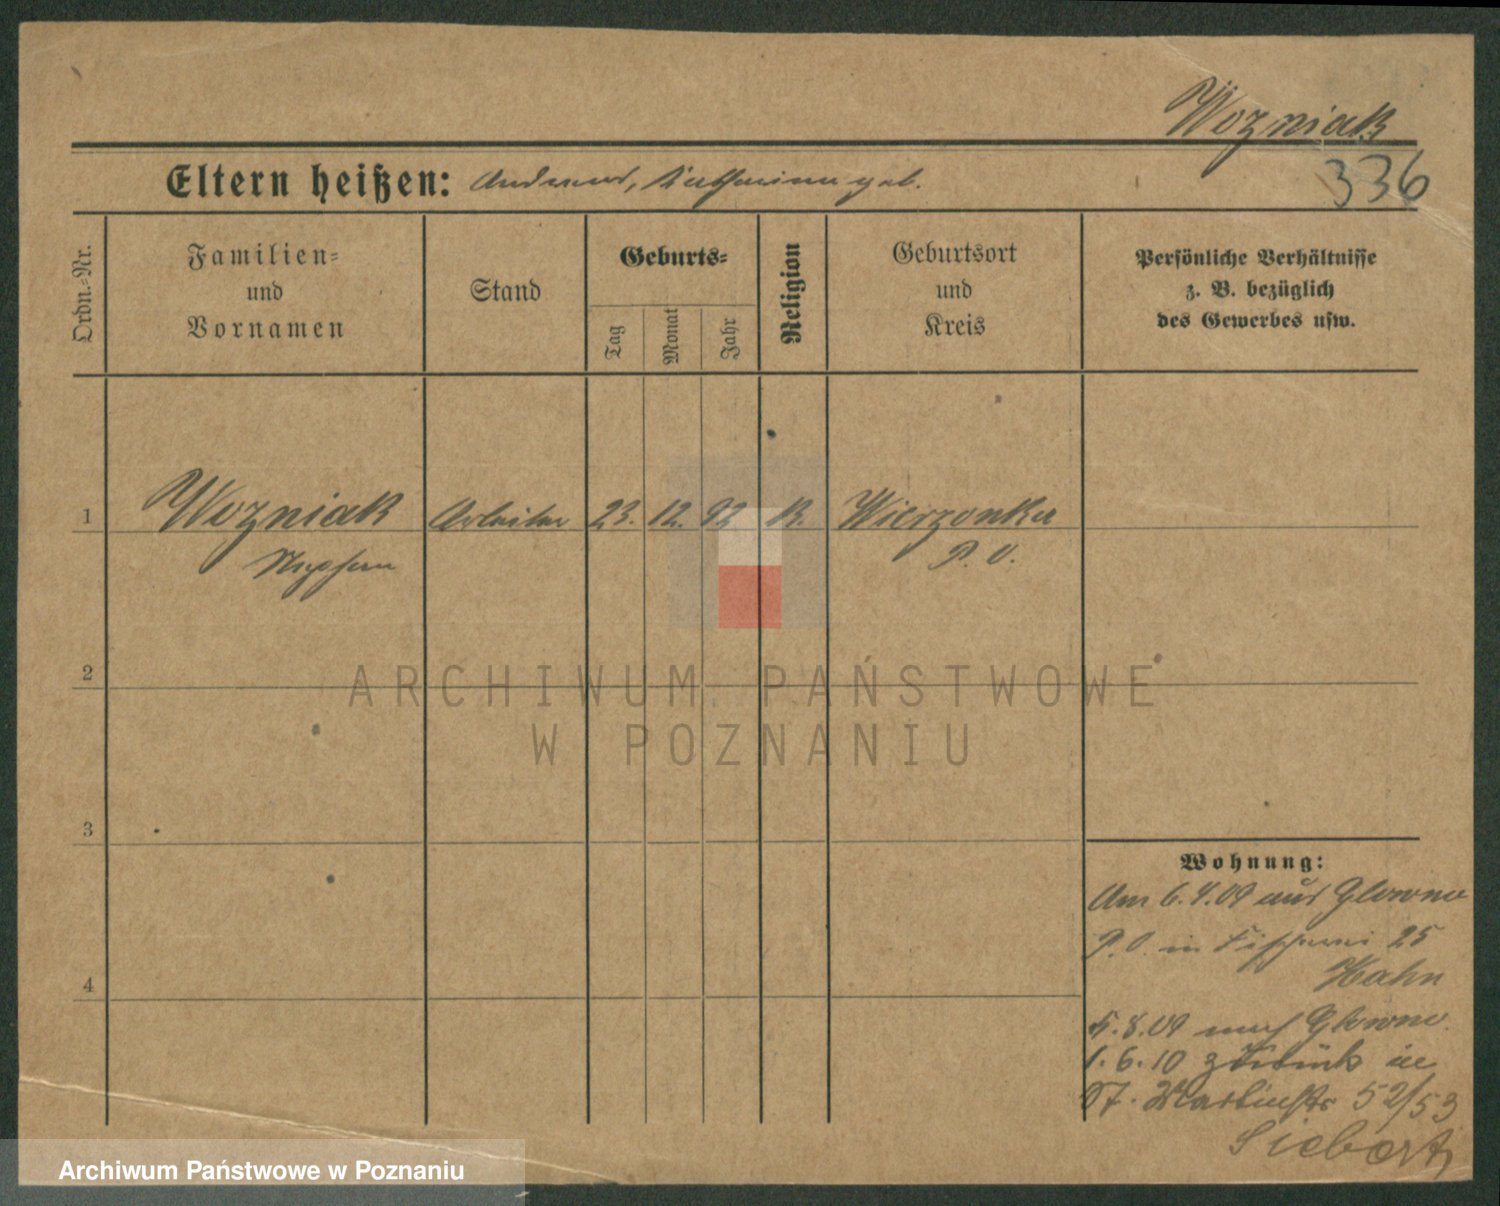 Wozniak
336
Eltern heißen: Andreas, Katharina geb.
Ordn.-Nr.
Familien-
und
Vornamen
Stand
Geburts-
Tag
Monat
Jahr
Religion
Geburtsort
und
Kreis
Persönliche Verhältnisse
z. B. bezüglich
des Gewerbes usw.
1 Wozniak Arbeiter 23. 12. 92 k. Wierzonka
P. O.
2
3
4
Wohnung:
Am 6.4.09 aus Glowno
P.O. in Fischerei 25
Hahn
5.8.09 nach Glowno.
1.6.10 zurück in
St. Martinstr 52/53
Siebert
ARCHIWUM PAŃSTWOWE
W POZNANIU
Archiwum Państwowe w Poznaniu